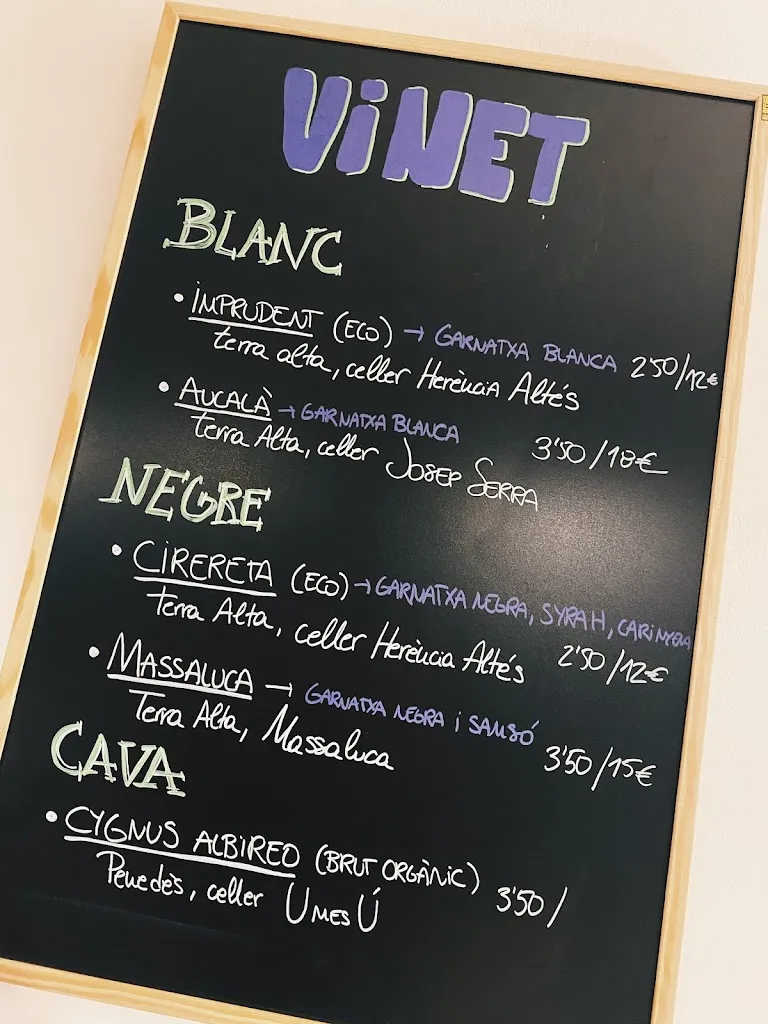 ViNET
BLANC
• IMPRUDENT (ECO) → GARNATXA BLANCA 2'50/12€
terra alta, celler Herència Altés
• AUCALÀ → GARNATXA BLANCA 3'50/18€
Terra Alta, celler Josep Serra
NEGRE
• CIRERETA (ECO) → GARNATXA NEGRA, SYRAH, CARINYENA
Terra Alta, celler Herència Altés 2'50/12€
• MASSALUCA → GARNATXA NEGRA i SAMSÓ
Terra Alta, Massaluca 3'50/15€
CAVA
• CYGNUS ALBIREO (BRUT ORGÀNIC) 3'50/
Penedès, celler U MES Ú